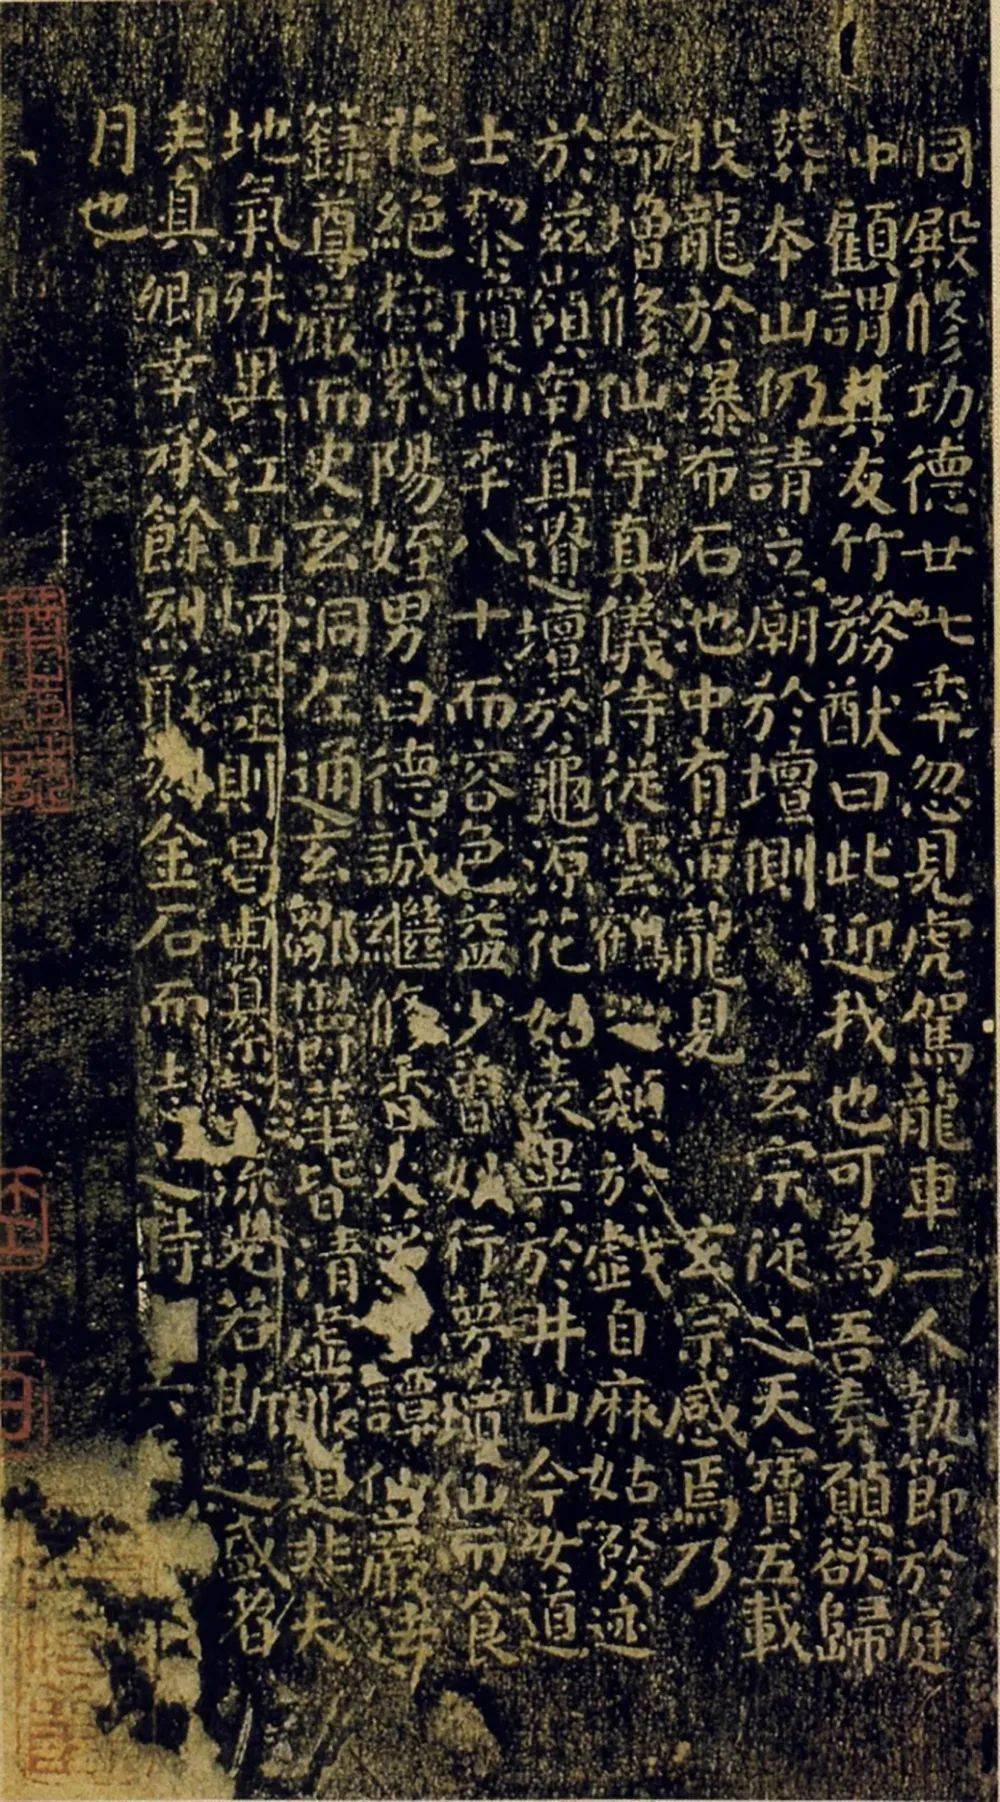 同殿修功德廿七年忽見虎駕龍車二人執節於庭
中顧謂其友竹務猷曰此迎我也可為吾奏願欲歸
葬本山仍請立廟於壇側玄宗從之天寶五載
投龍於瀑布石池中有黃龍見玄宗感焉乃
命增修仙宇真儀侍從雲鶴之類於戲自麻姑發迹
於茲嶺南真遺壇於龜源花姑表異於井山今女道
士黎瓊仙年八十而容色益少曾妙行夢瓊仙而食
花絕粒紫陽姪男曰德誠繼修香火譚仙巖
籙尊嚴而史玄洞左通玄鄒鬱華皆清虛服非夫
地氣殊異江山炳靈則曷由纂流光若斯之盛者
矣真卿幸承餘烈敢金石而志之時六
月也